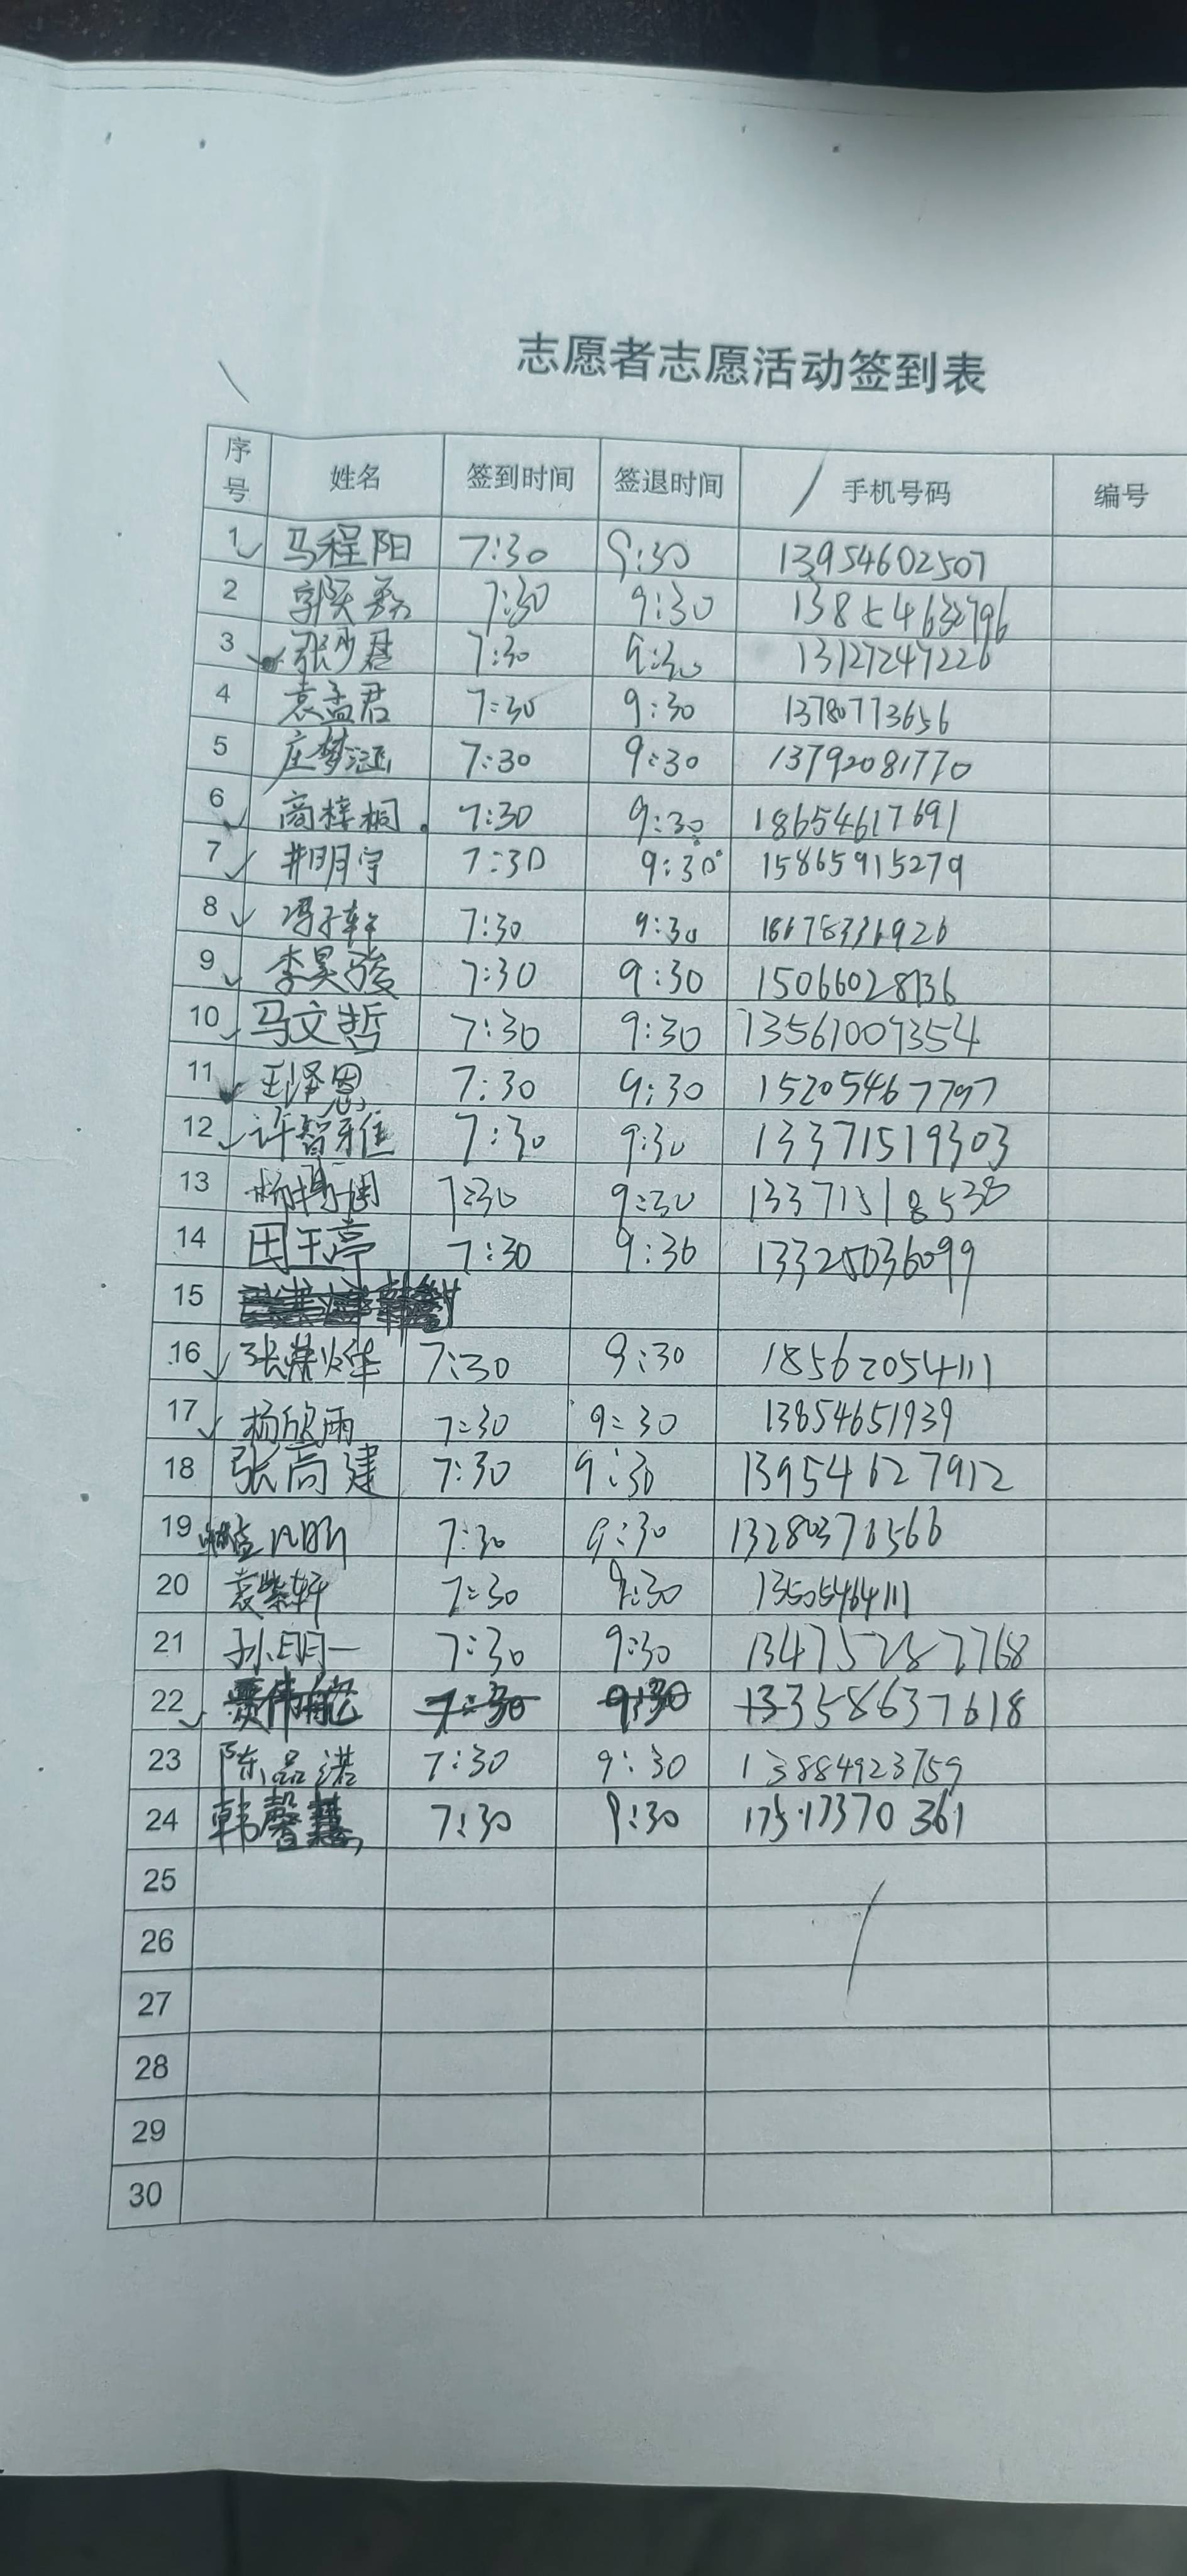 志愿者志愿活动签到表
序号 姓名 签到时间 签退时间 手机号码 编号
1 马程阳 7:30 9:30 13954602507
2 7:30 9:30
3 7:30 9:30 13127247226
4 袁孟君 7:30 9:30 13780773656
5 庄梦涵 7:30 9:30 13792081770
6 商梓桐 7:30 9:30 18654617691
7 井明宇 7:30 9:30 15865915279
8 冯子轩 7:30 9:30
9 李昊骏 7:30 9:30 15066028736
10 马文哲 7:30 9:30 13561007354
11 王泽恩 7:30 9:30 15205467797
12 许智雅 7:30 9:30 13371519303
13 7:30 9:30 13371518538
14 田玉亭 7:30 9:30 13325036099
15
16 张荣烨 7:30 9:30 18562054111
17 杨欣雨 7:30 9:30 13854651939
18 张高建 7:30 9:30 13954627912
19 7:30 9:30
20 袁紫轩 7:30 9:30 13505464111
21 孙明一 7:30 9:30 13475287768
22 7:30 9:30 13358637618
23 陈品诺 7:30 9:30 13884923759
24 韩馨慧 7:30 9:30 17517370361
25
26
27
28
29
30